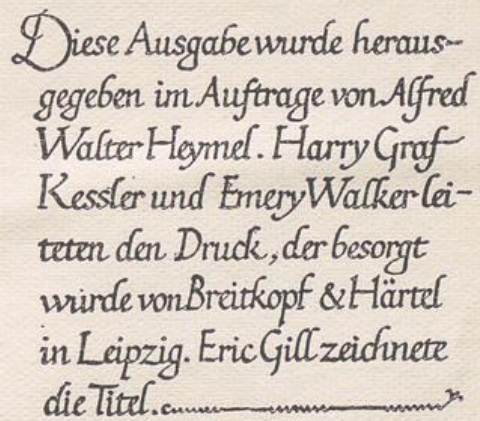 Diese Ausgabe wurde heraus-
gegeben im Auftrage von Alfred
Walter Heymel. Harry Graf
Kessler und Emery Walker lei-
teten den Druck, der besorgt
wurde von Breitkopf & Härtel
in Leipzig. Eric Gill zeichnete
die Titel.